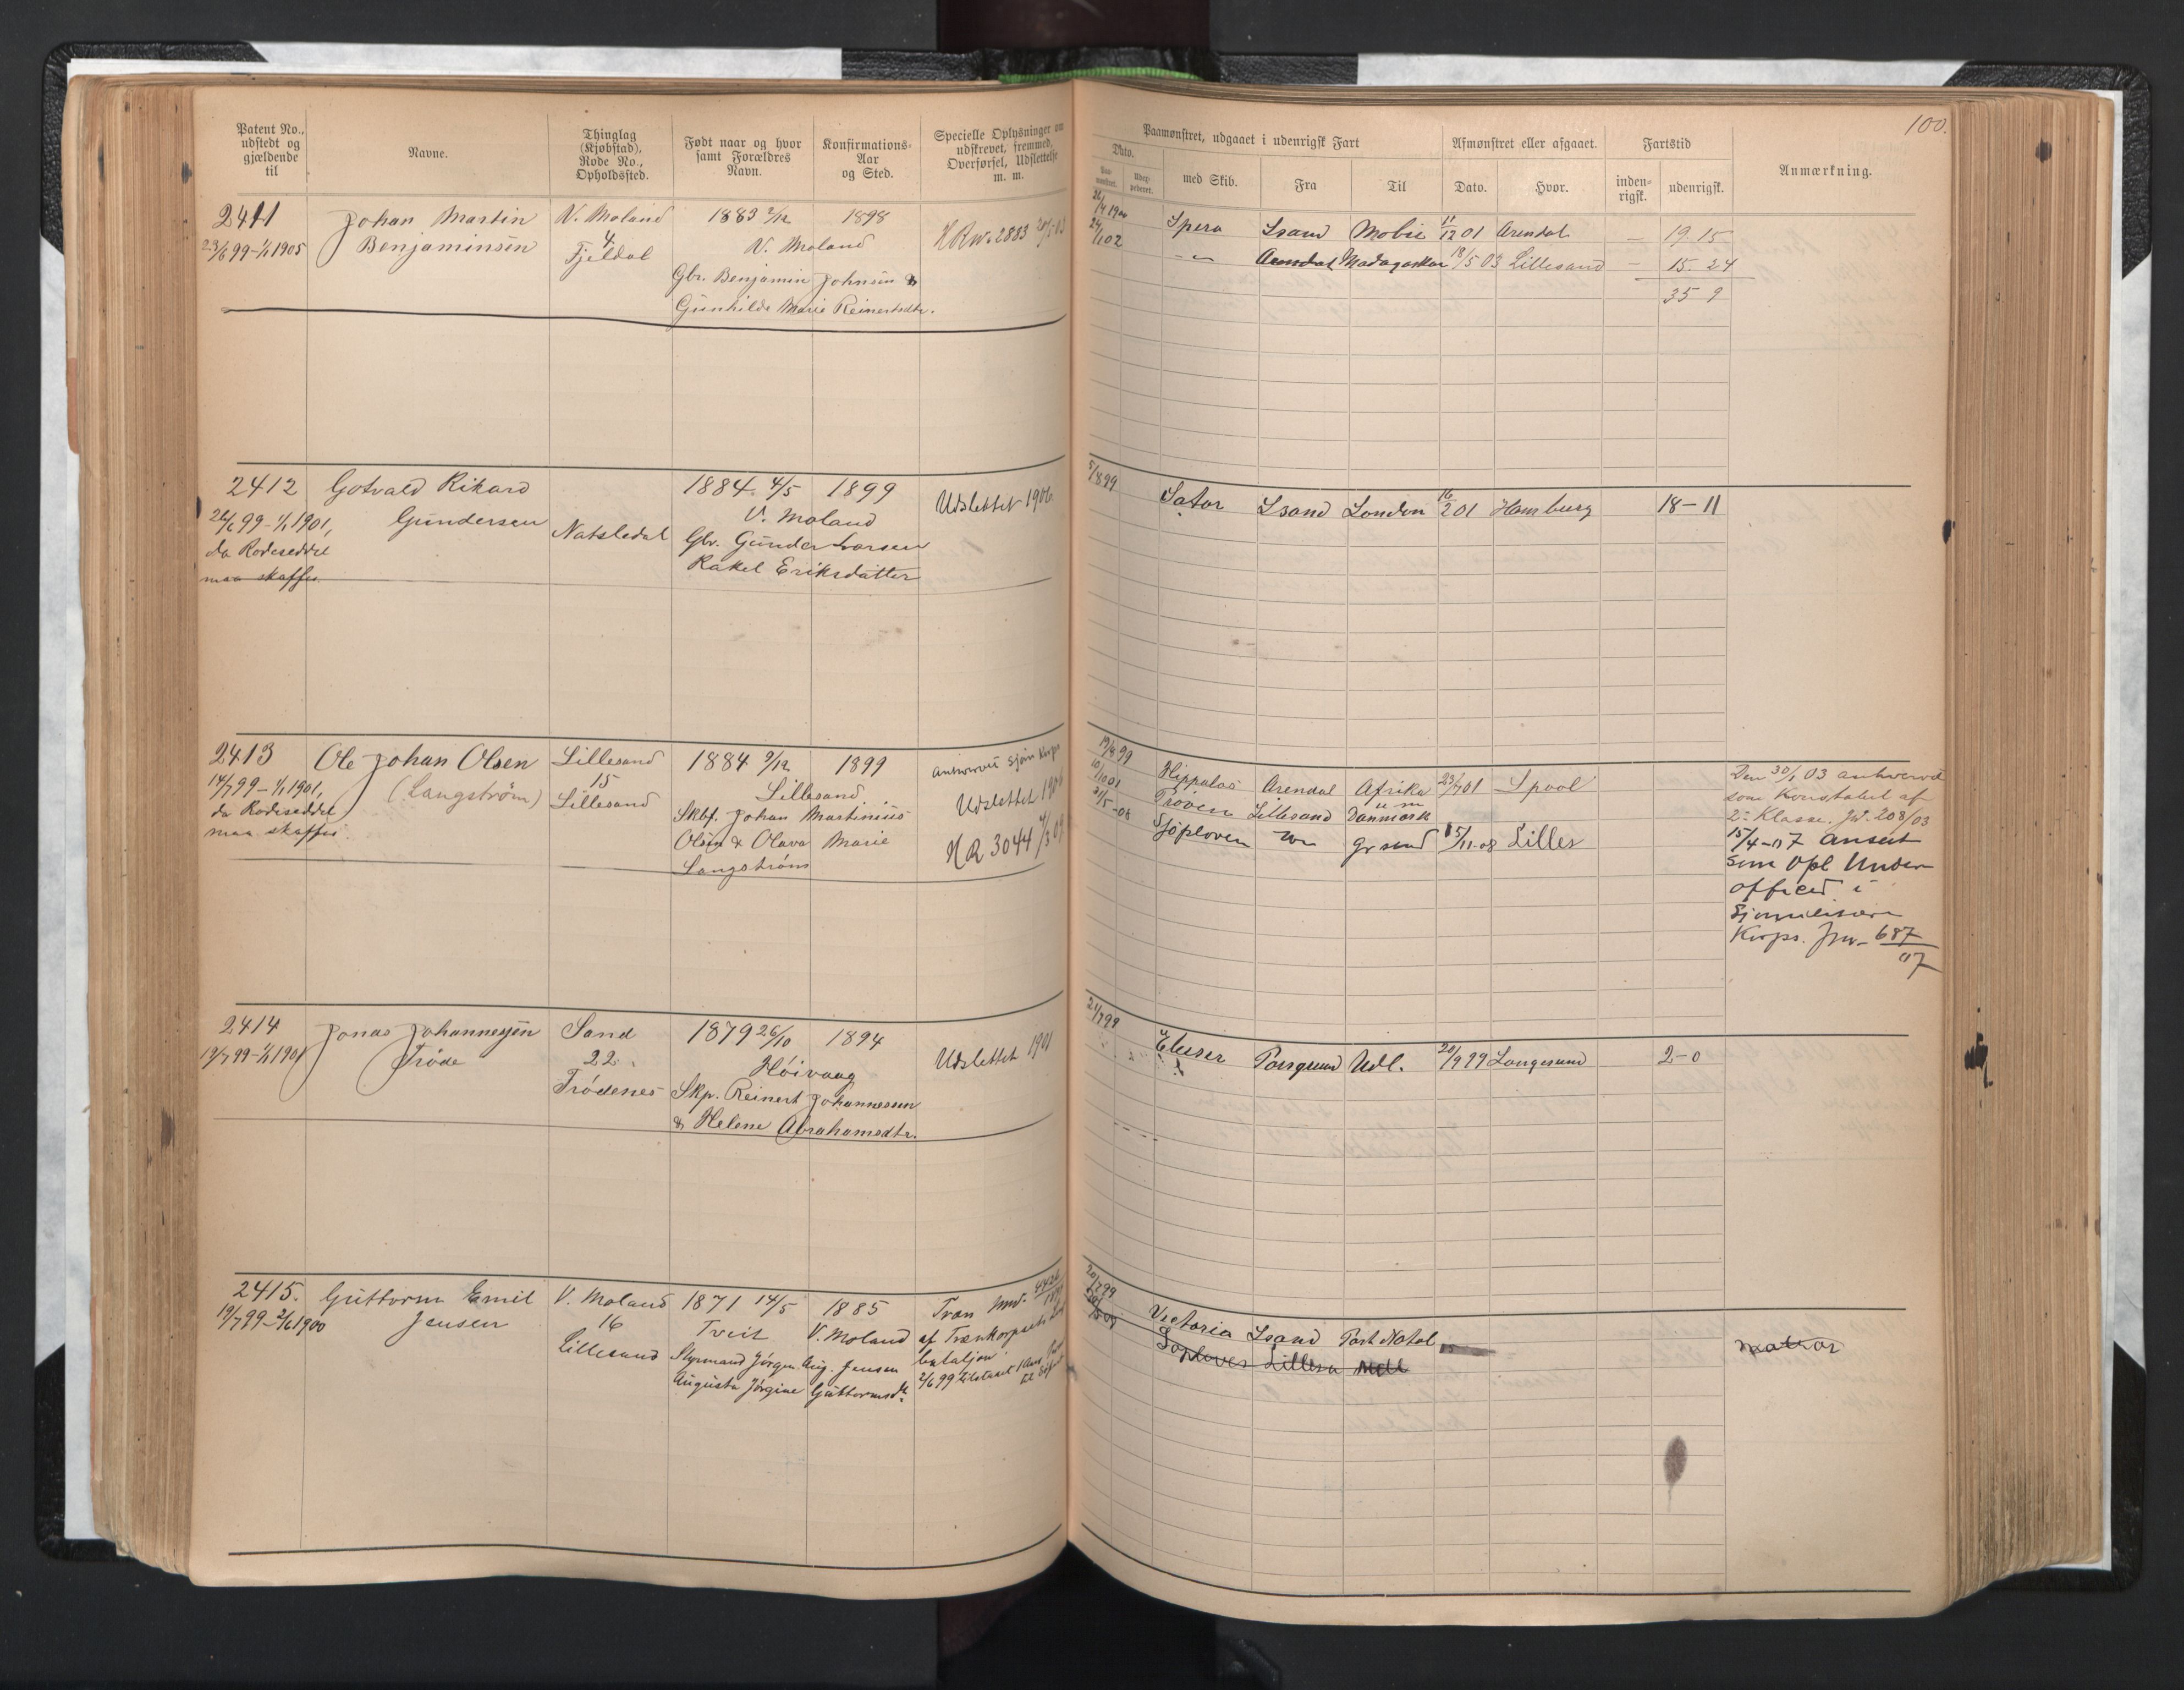 Patent No., udstedt og gjældende til
Navne.
Thinglag (Kjøbstad), Rode No., Opholdssted.
Født naar og hvor samt Forældres Navn.
Konfirmations-Aar og Sted.
Specielle Oplysninger om udskrevet, fremmed, Overførsel, Udslettelse m. m.
Paamønstret, udgaaet i udenrigsk Fart
Dato.
med Skib.
Fra
Til
Afmønstret eller afgaaet.
Dato.
Hvor.
Fartstid
inden-rigsk.
udenrigsk.
Anmærkning.
100.
2411
23/6 99-1/1 1905
Johan Martin
Benjaminsen
V. Moland
4
Fjeldal
1883 2/12
1898
V. Moland
Gbr. Benjamin Johnsen &
Gunhilde Marie Reinertsdtr.
HR No 2883
Spera Lsand Mobile 11/12 01 Arendal — 19. 15
24/1 02
-"- Arendal Madagaskar 18/5 03 Lillesand — 15. 24
35 9
2412
26/6 99-1/1 1901,
da Rodeseddel
maa skaffes
Gotvald Rikard
Gundersen
Natsledal
1884 4/5
1899
V. Moland
Gbr. Gunder Larsen
Rakel Eriksdatter
Udslettet 1906
5/8 99
Sator Lsand London 16/2 01 Hamburg 18-11
2413
14/7 99-1/1 1901,
da Rodeseddel
maa skaffes
Ole Johan Olsen
(Langström)
Lillesand
15
Lillesand
1884 9/12
1899
Lillesand
Skbf. Johan Martinius
Olsen & Olava Marie
Langströms
Udslettet
HR 3044
19/8 99
Hippalos Arendal Afrika 23/7 01 Lpool
Pröven Lillesand Danmark
21/5-08
Sjöploven Grsund 15/11-08 Lilles
Den 30/1 03 anhvervet
som Konstabel af
2. Klasse. JN. 208/03
15/4-07 Ansat
som Opl Under
officer i
Sjømilitære
Korps. Jnr- 687/07
2414
19/7 99-1/1 1901
Jonas Johannessen
Tröde
Sand
22
Trödenes
1879 26/10
1894
Höivaag
Skp. Reinert Johannessen
& Helene Abrahamsdtr.
Udslettet 1901
21/7 99
Elieser Porsgrund Udl. 20/9 99 Langesund 2-0
2415.
19/7 99-2/6 1900
Guttorm Emil
Jensen
V. Moland
16
Lillesand
1871 14/5
1885
Tveit
V. Moland
Styrmand Jörgen Aug. Jensen
Augusta Jörgine Guttormsdt.
Træn
af Trænkorpset
bataljon
2/6 99 tilstaaet 1 Aars
20/7 99
Victoria Lsand Port Natal
Sjøploven Lillesa Udl
matros